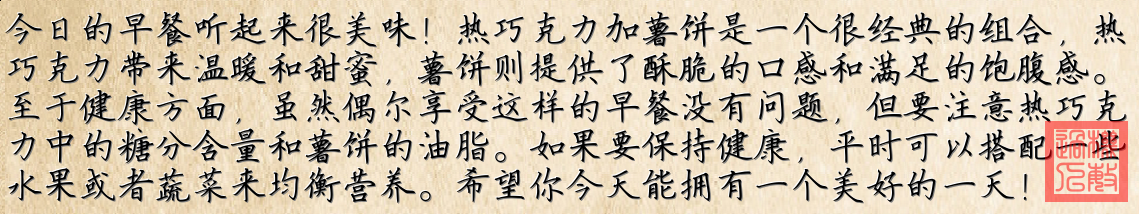 今日的早餐听起来很美味！热巧克力加薯饼是一个很经典的组合，热
巧克力带来温暖和甜蜜，薯饼则提供了酥脆的口感和满足的饱腹感。
至于健康方面，虽然偶尔享受这样的早餐没有问题，但要注意热巧克
力中的糖分含量和薯饼的油脂。如果要保持健康，平时可以搭配一些
水果或者蔬菜来均衡营养。希望你今天能拥有一个美好的一天！